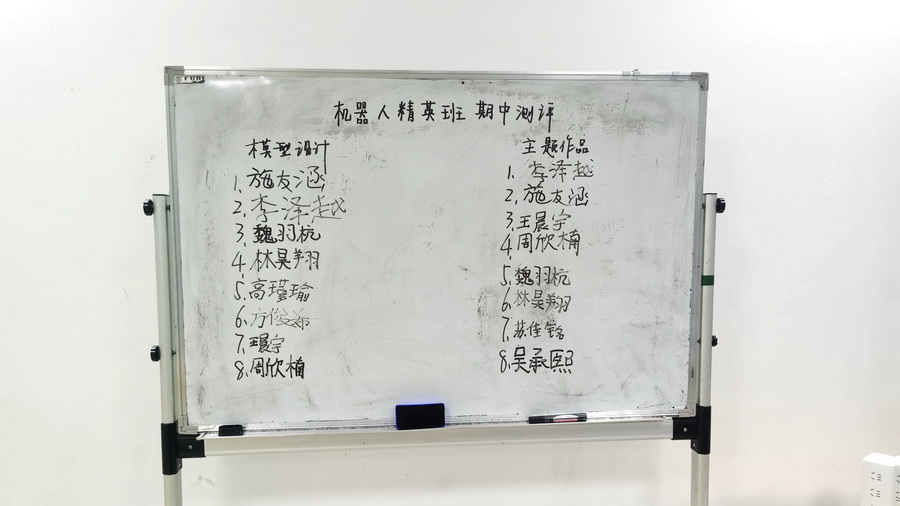 机器人精英班 期中测评
模型设计
1. 施友涵
2. 李泽越
3. 魏羽杭
4. 林昊翔
5. 高瑾瑜
6. 方俊
7. 王晨宇
8. 周欣楠
主题作品
1. 李泽越
2. 施友涵
3. 王晨宇
4. 周欣楠
5. 魏羽杭
6. 林昊翔
7. 苏佳铭
8. 吴承熙